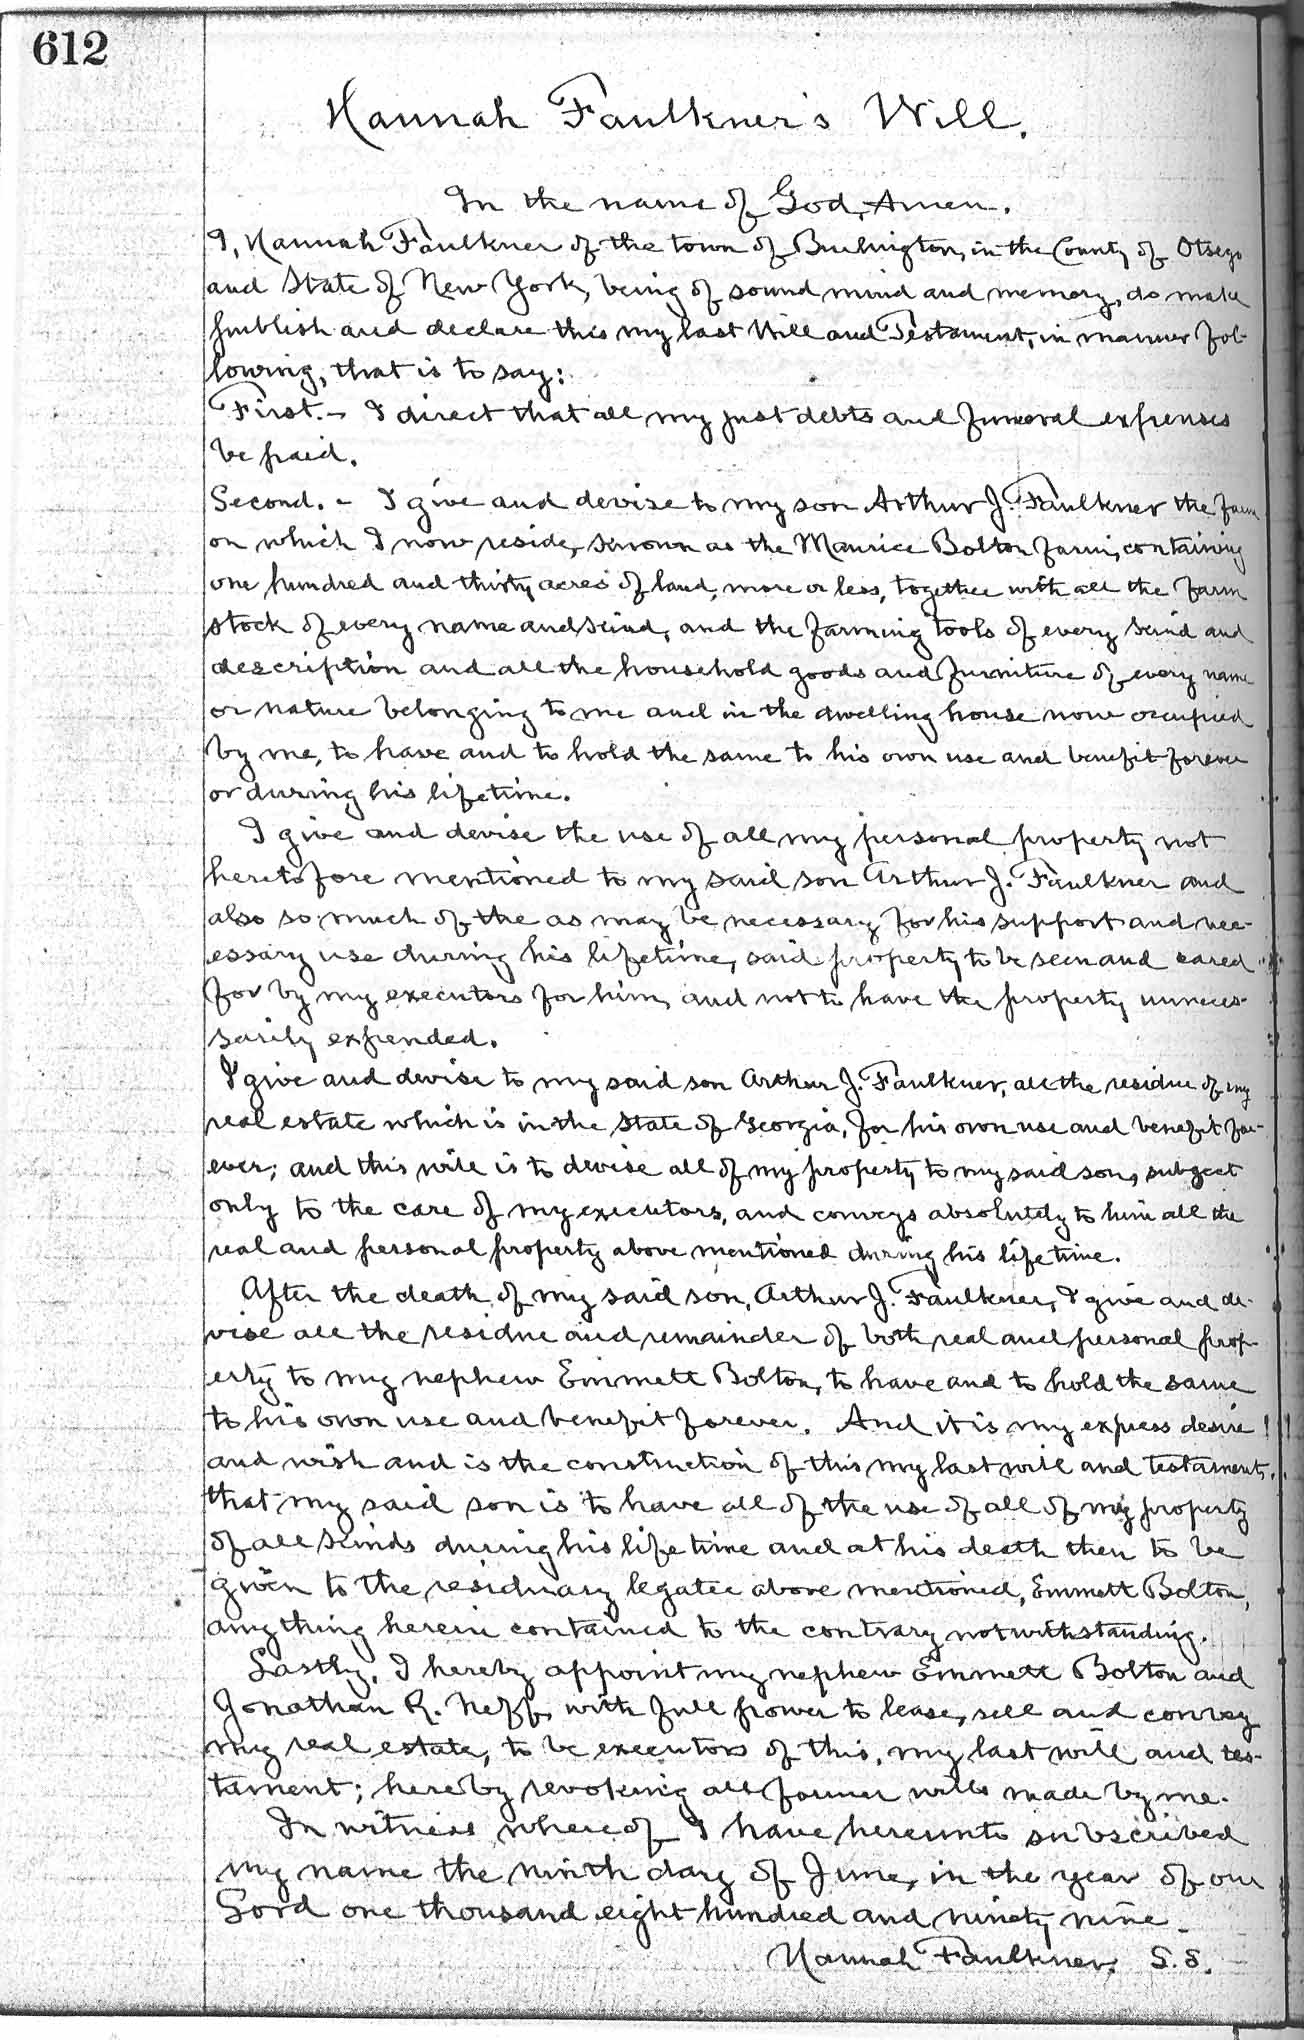 612
Hannah Faulkner's Will.
In the name of God, Amen.
I, Hannah Faulkner of the town of Burlington, in the County of Otsego
and State of New York, being of sound mind and memory, do make
publish and declare this my last Will and Testament, in manner fol-
lowing, that is to say:
First. - I direct that all my just debts and funeral expenses
be paid.
Second. - I give and devise to my son Arthur J. Faulkner the farm
on which I now reside, known as the Maurice Bolton farm, containing
one hundred and thirty acres of land, more or less, together with all the farm
stock of every name and kind, and the farming tools of every kind and
description and all the household goods and furniture of every name
or nature belonging to me and in the dwelling house now occupied
by me, to have and to hold the same to his own use and benefit forever
or during his lifetime.
I give and devise the use of all my personal property not
heretofore mentioned to my said son Arthur J. Faulkner and
also so much of the as may be necessary for his support and nec-
essary use during his lifetime, said property to be seen and cared
for by my executors for him, and not to have the property unneces-
sarily expended.
I give and devise to my said son Arthur J. Faulkner, all the residue of my
real estate which is in the State of Georgia, for his own use and benefit for-
ever; and this will is to devise all of my property to my said son, subject
only to the care of my executors, and conveys absolutely to him all the
real and personal property above mentioned during his lifetime.
After the death of my said son, Arthur J. Faulkner, I give and de-
vise all the residue and remainder of both real and personal prop-
erty to my nephew Emmett Bolton, to have and to hold the same
to his own use and benefit forever. And it is my express desire
and wish and is the construction of this my last will and testament,
that my said son is to have all of the use of all of my property
of all kinds during his lifetime and at his death then to be
given to the residuary legatee above mentioned, Emmett Bolton,
anything herein contained to the contrary notwithstanding.
Lastly, I hereby appoint my nephew Emmett Bolton and
Jonathan R. Neff, with full power to lease, sell and convey
my real estate, to be executors of this, my last will and tes-
tament; hereby revoking all former wills made by me.
In witness whereof I have hereunto subscribed
my name the ninth day of June, in the year of our
Lord one thousand eight hundred and ninety nine.
Hannah Faulkner. L.S.